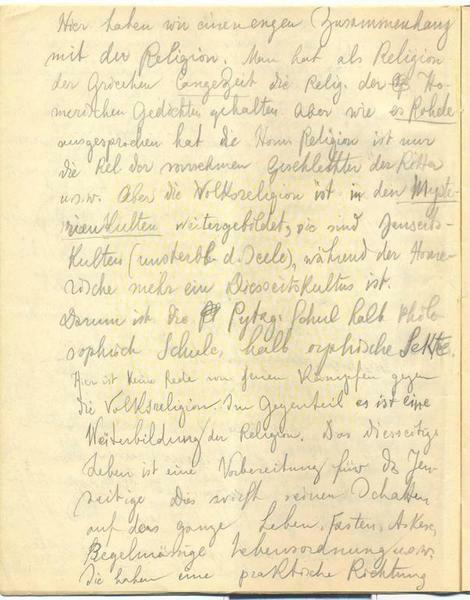 Hier haben wir einen engen Zusammenhang
mit der Religion. Man hat als Religion
der Griechen Lange Zeit die Relig. der Ho-
merischen Gedichten gehalten aber wie es Rohde
ausgesprochen hat die Hom Religion ist nur
die Rel der vornehmen Geschlechter der Ritter
u.s.w. Aber die Volksreligion ist in den Myste-
rienkulten weitergebildet, sie sind Jenseits-
Kulten (unsterbl. d. Seele), während der Home-
rische mehr ein Diesseitskultus ist.
Darum ist die Pytag. Schul halb philo
sophisch Schule, halb orphische Sekte.
Hier ist keine Rede von jenen Kämpfen gegen
die Volksreligion Im Gegenteil es ist eine
Weiterbildung der Religion. Das diesseitige
Leben ist eine Vorbereitung für d Jen-
seitige Dies wirft seinen Schatten
auf das ganze Leben. Fasten, Askese,
Regelmässige Lebensordnung u.s.w.
Sie haben eine praktische Richtung